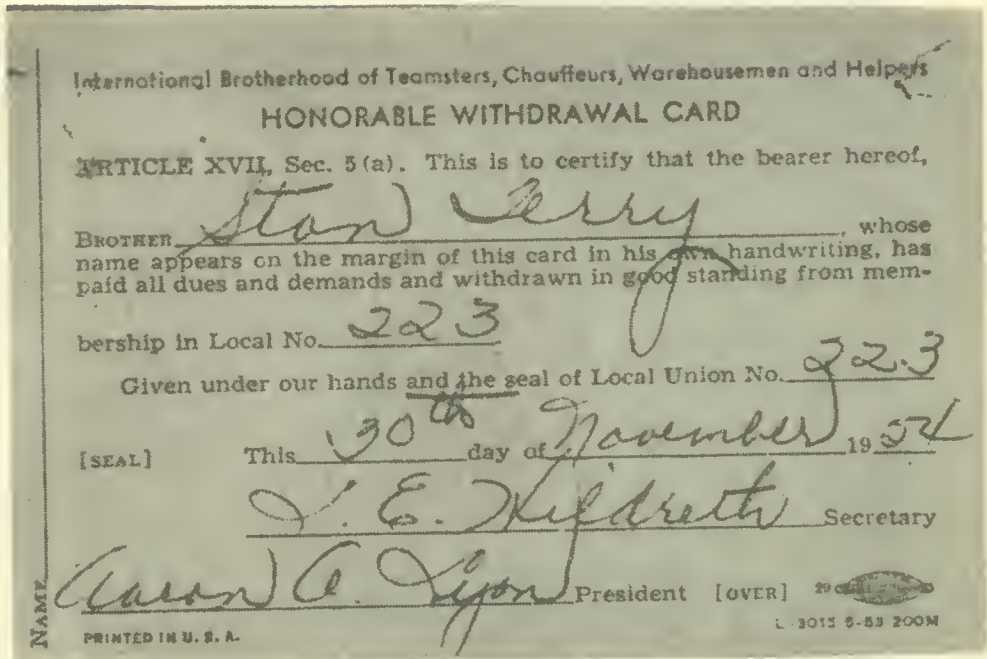 International Brotherhood of Teamsters, Chauffeurs, Warehousemen and Helpers
HONORABLE WITHDRAWAL CARD
ARTICLE XVII, Sec. 5 (a). This is to certify that the bearer hereof,
BROTHER Stan Terry, whose
name appears on the margin of this card in his own handwriting, has
paid all dues and demands and withdrawn in good standing from mem-
bership in Local No. 223
Given under our hands and the seal of Local Union No. 223
[SEAL] This 30th day of November 1954
J. E. Hildreth Secretary
Aaron A. Lyon President [OVER]
PRINTED IN U. S. A. L-3015 5-53 200M
NAME